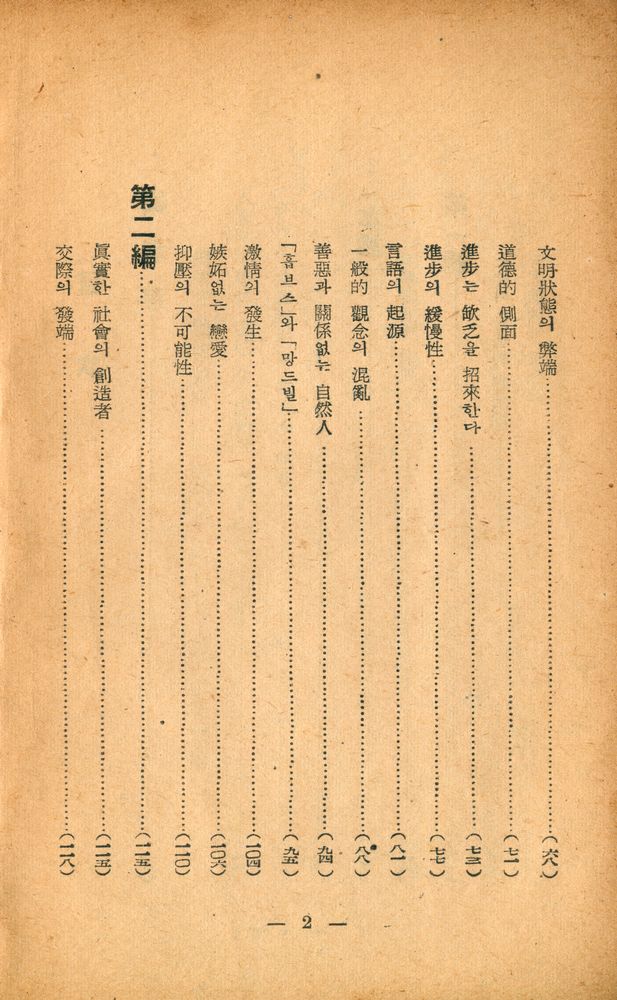 文明狀態의 弊端……(六八)
道德的 側面……(七一)
進步는 缺乏을 招來한다……(七三)
進步의 緩慢性……(七七)
言語의 起源……(八一)
一般的 觀念의 混亂……(八八)
善惡과 關係없는 自然人……(九四)
「홉브스」와 「망드빌」……(九五)
激情의 發生……(一〇四)
嫉妬없는 戀愛……(一〇六)
抑壓의 不可能性……(一一〇)
第二編……(一一五)
眞實한 社會의 創造者……(一一五)
交際의 發端……(一一八)
— 2 —